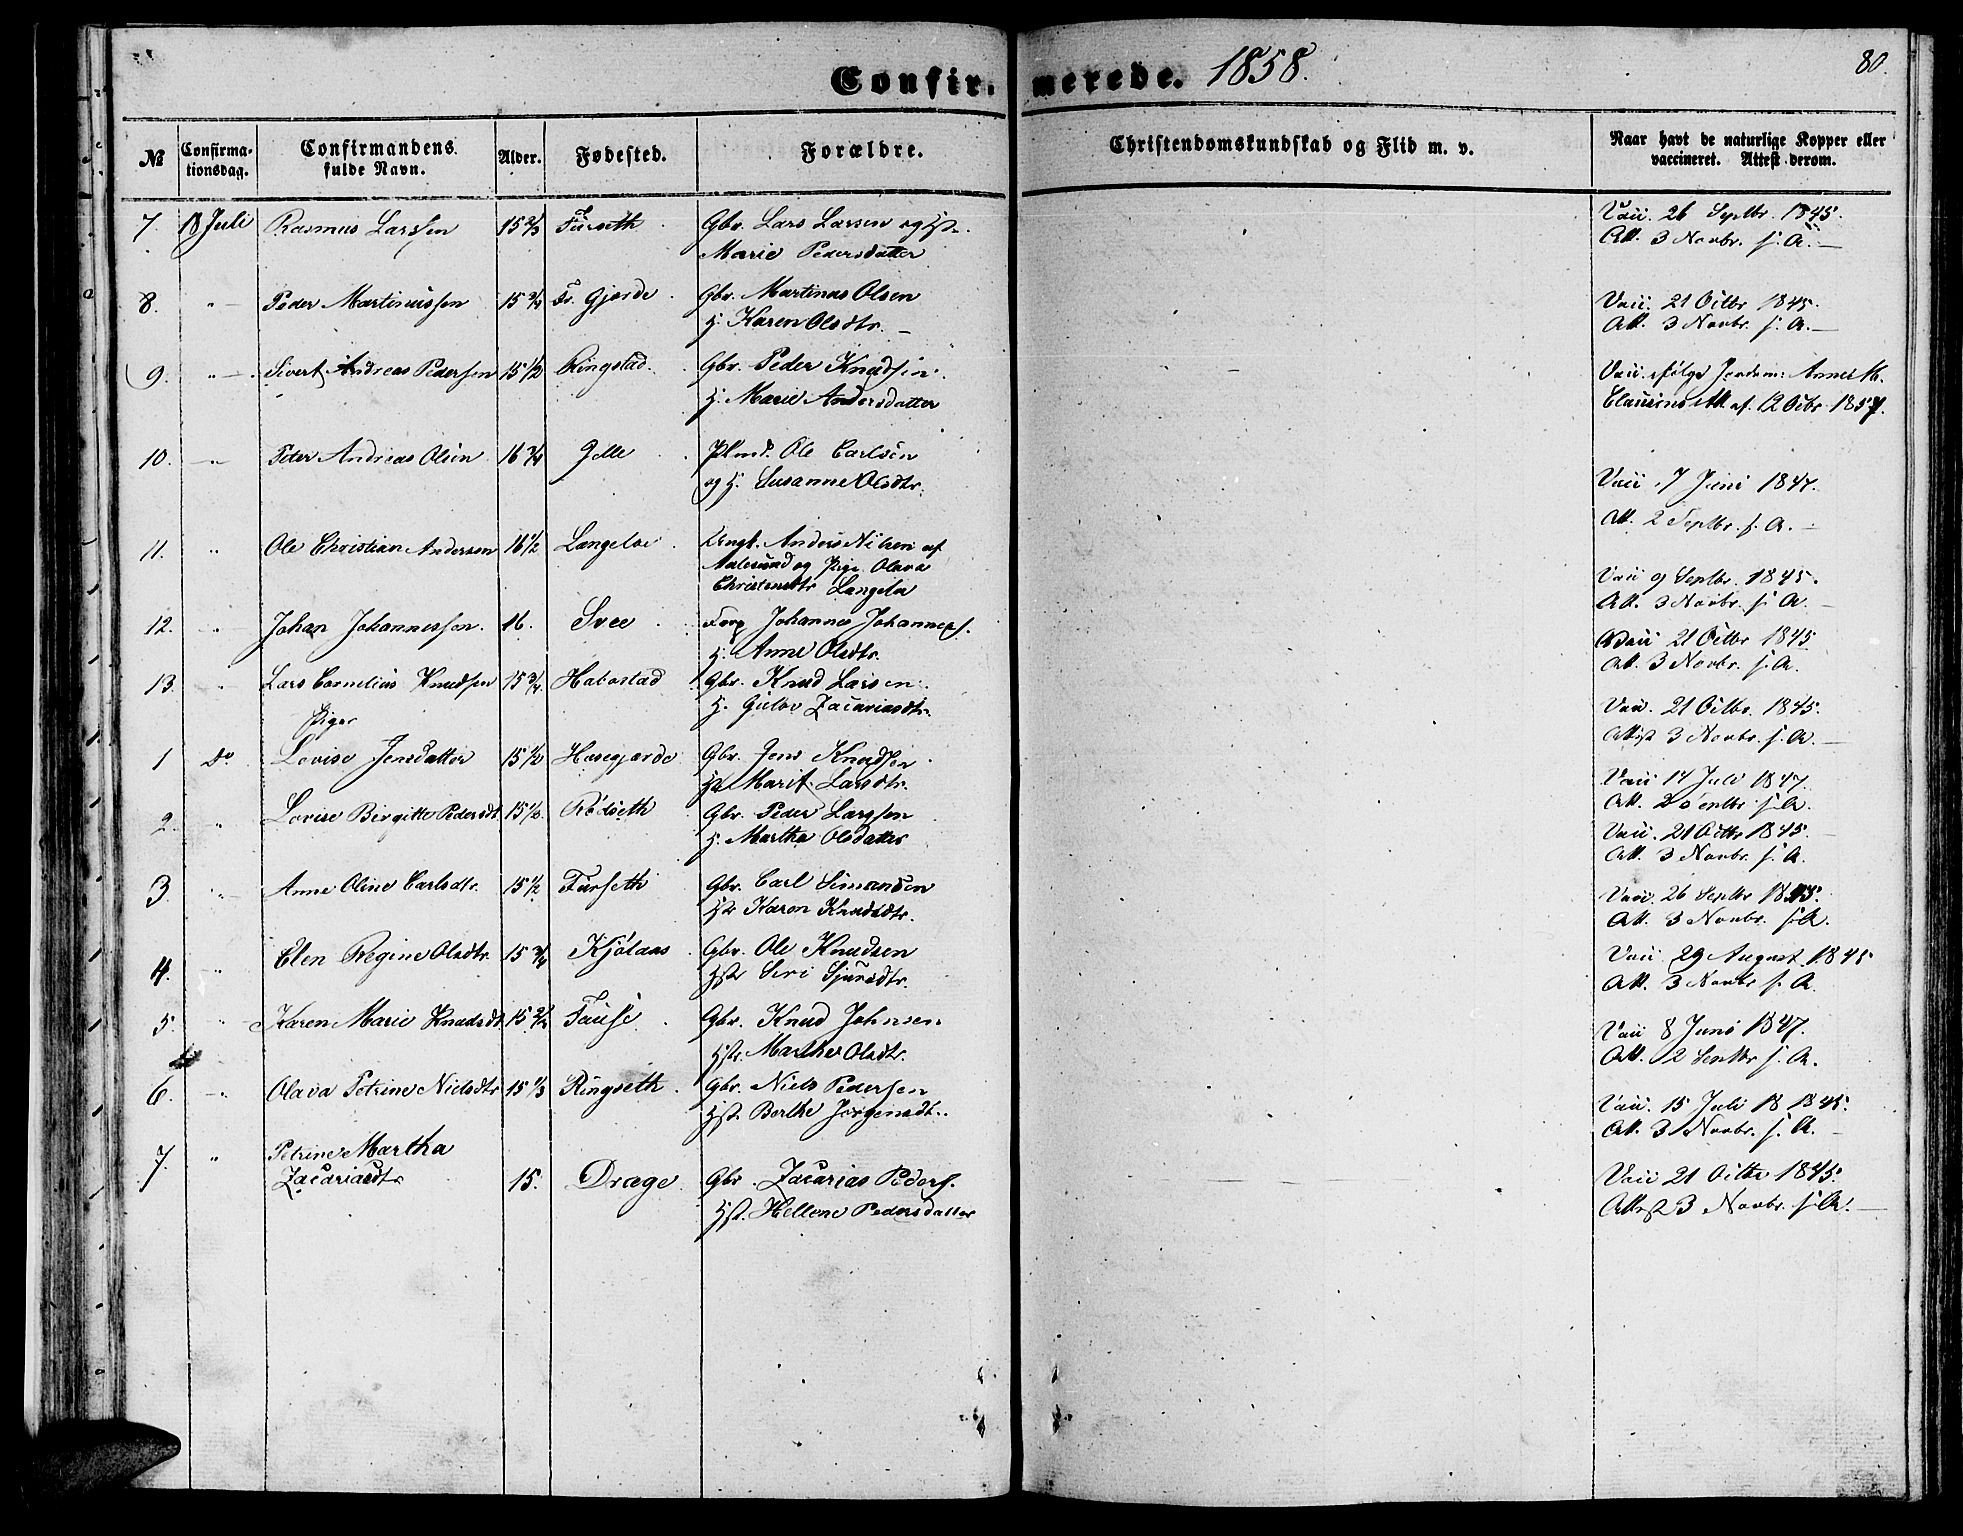 Confirmerede. 1858.
80.
№
Confirma-
tionsdag.
Confirmandens
fulde Navn.
Alder.
Fødested.
Forældre.
Christendomskundskab og Flid m. v.
Naar havt de naturlige Kopper eller
vaccineret. Attest derom.
7. 18 Juli Rasmus Larssen 15 2/3 Furseth Gbr. Lars Larsen og Hst.
Marie Pedersdatter
Vacc. 26 Septbr. 1845.
Att. 3 Novbr. s. A. —
8. " Peder Martinussen 15 3/4 Fr. Gjerde Gbr. Martinus Olsen
H. Karen Olsdtr. —
Vacc. 21 Octbr 1845.
Att. 3 Novbr. s. A. —
9. " Sivert Andreas Pedersen 15 1/2 Ringstad. Gbr. Peder Knudsen
H. Marie Andersdatter
Vacc. ifølge Jordem: Anne M.
Clausens Att. af 12 Octbr. 1857.
10. " Peter Andreas Olsen 16 3/4 Gille Plmd. Ole Carlsen
og H. Susanne Olsdtr.
Vacc. 7 Juni 1847.
Att. 2 Septbr. s. A. —
11. " Ole Christian Andersen 16 1/2 Langeloe Ungk. Anders Nilsen af
Aalesund og Pige Olava
Christensdtr Langelo
Vacc 9 Septbr. 1845.
Att. 3 Novbr. s. A. —
12. " Johan Johannessen. 16. Svee Forp Johannes Johanness.
H. Anne Olsdtr.
Vacc 21 Octbr 1845
Att. 3 Novbr. s. A.
13. " Lars Cornelius Knudsen 15 3/4 Habostad Gbr. Knud Larsen
H. Gulov Zacariasdtr.
Vacc. 21 Octbr. 1845.
Attest 3 Novbr. s. A. —
Piger
1 Do Lovise Jensdatter 15 1/2 Hasegjerde Gbr. Jens Knudsen
Hst Marit Larsdtr.
Vacc 14 Juli 1847.
Att. 2 Septbr s. A.
2. " Lovise Birgitte Pedersdt 15 1/2 Rødseth Gbr. Peder Larssen
H. Martha Olsdatter
Vacc. 21 Octbr 1845.
Att. 3 Novbr. s. A.
3. " Anne Oline Carlsdtr. 15 1/2 Furseth Gbr. Carl Simonsen
Hst Karen Knudsdtr.
Vacc. 26 Septbr 1845.
Att. 3 Novbr. s. A.
4. " Elen Regine Olsdtr. 15 3/4 Kjølaas Gbr. Ole Knudsen
Hst Siri Sjursdtr.
Vacc. 29 August 1845
Att. 3 Novbr s. A.
5. " Karen Marie Knudsdt 15 Fause Gbr. Knud Johnsen
Hst. Marthe Olsdtr.
Vacc 8 Juni 1847.
Att. 2 Septbr s. A.
6. " Olava Petrine Nielsdtr 15 1/3 Ringseth Gbr. Niels Pedersen
Hst. Berthe Jørgensdt.
Vacc. 15 Juli 18 1845.
Att. 3 Novbr. s. A. —
7. " Petrine Martha
Zacariasdtr 15. Drage Gbr. Zacarias Peders.
Hst. Hellene Pedersdatter
Vacc 21 Octbr 1845.
Attest 3 Novbr. s. A. —